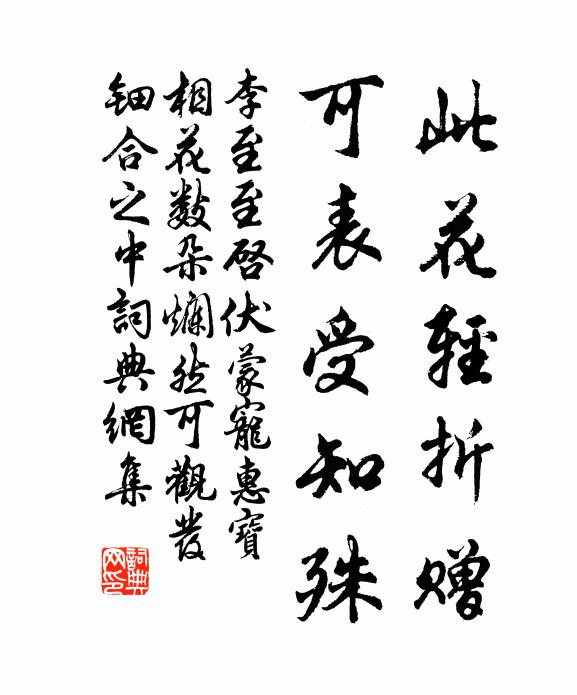 此花輕折贈
可表受知殊
李至至啓伏蒙寵惠寶
相花数朵爛然可觀發
鈿合之中詞典網集
詞典
网印